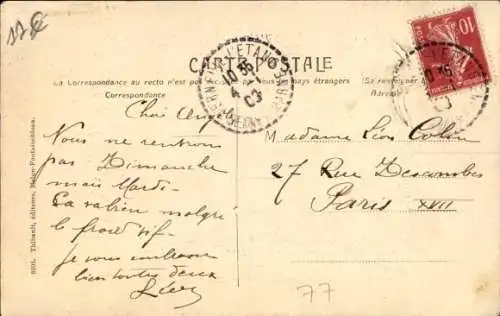 12 €
CARTE POSTALE
La Correspondance au recto n'est pas
pays étrangers
(Se renseigner
Correspondance
Adresse
10
L'ETANG
10 35
4
03
Nous ne rentrons
pas Dimanche
mais Mardi -
Ça va bien malgré
le froid vif -
Je vous embrasse
bien toutes deux
Léon
Madame Léon Colon
27 Rue Descombes
Paris XVII
77
Thibault, éditeur, Fontainebleau.